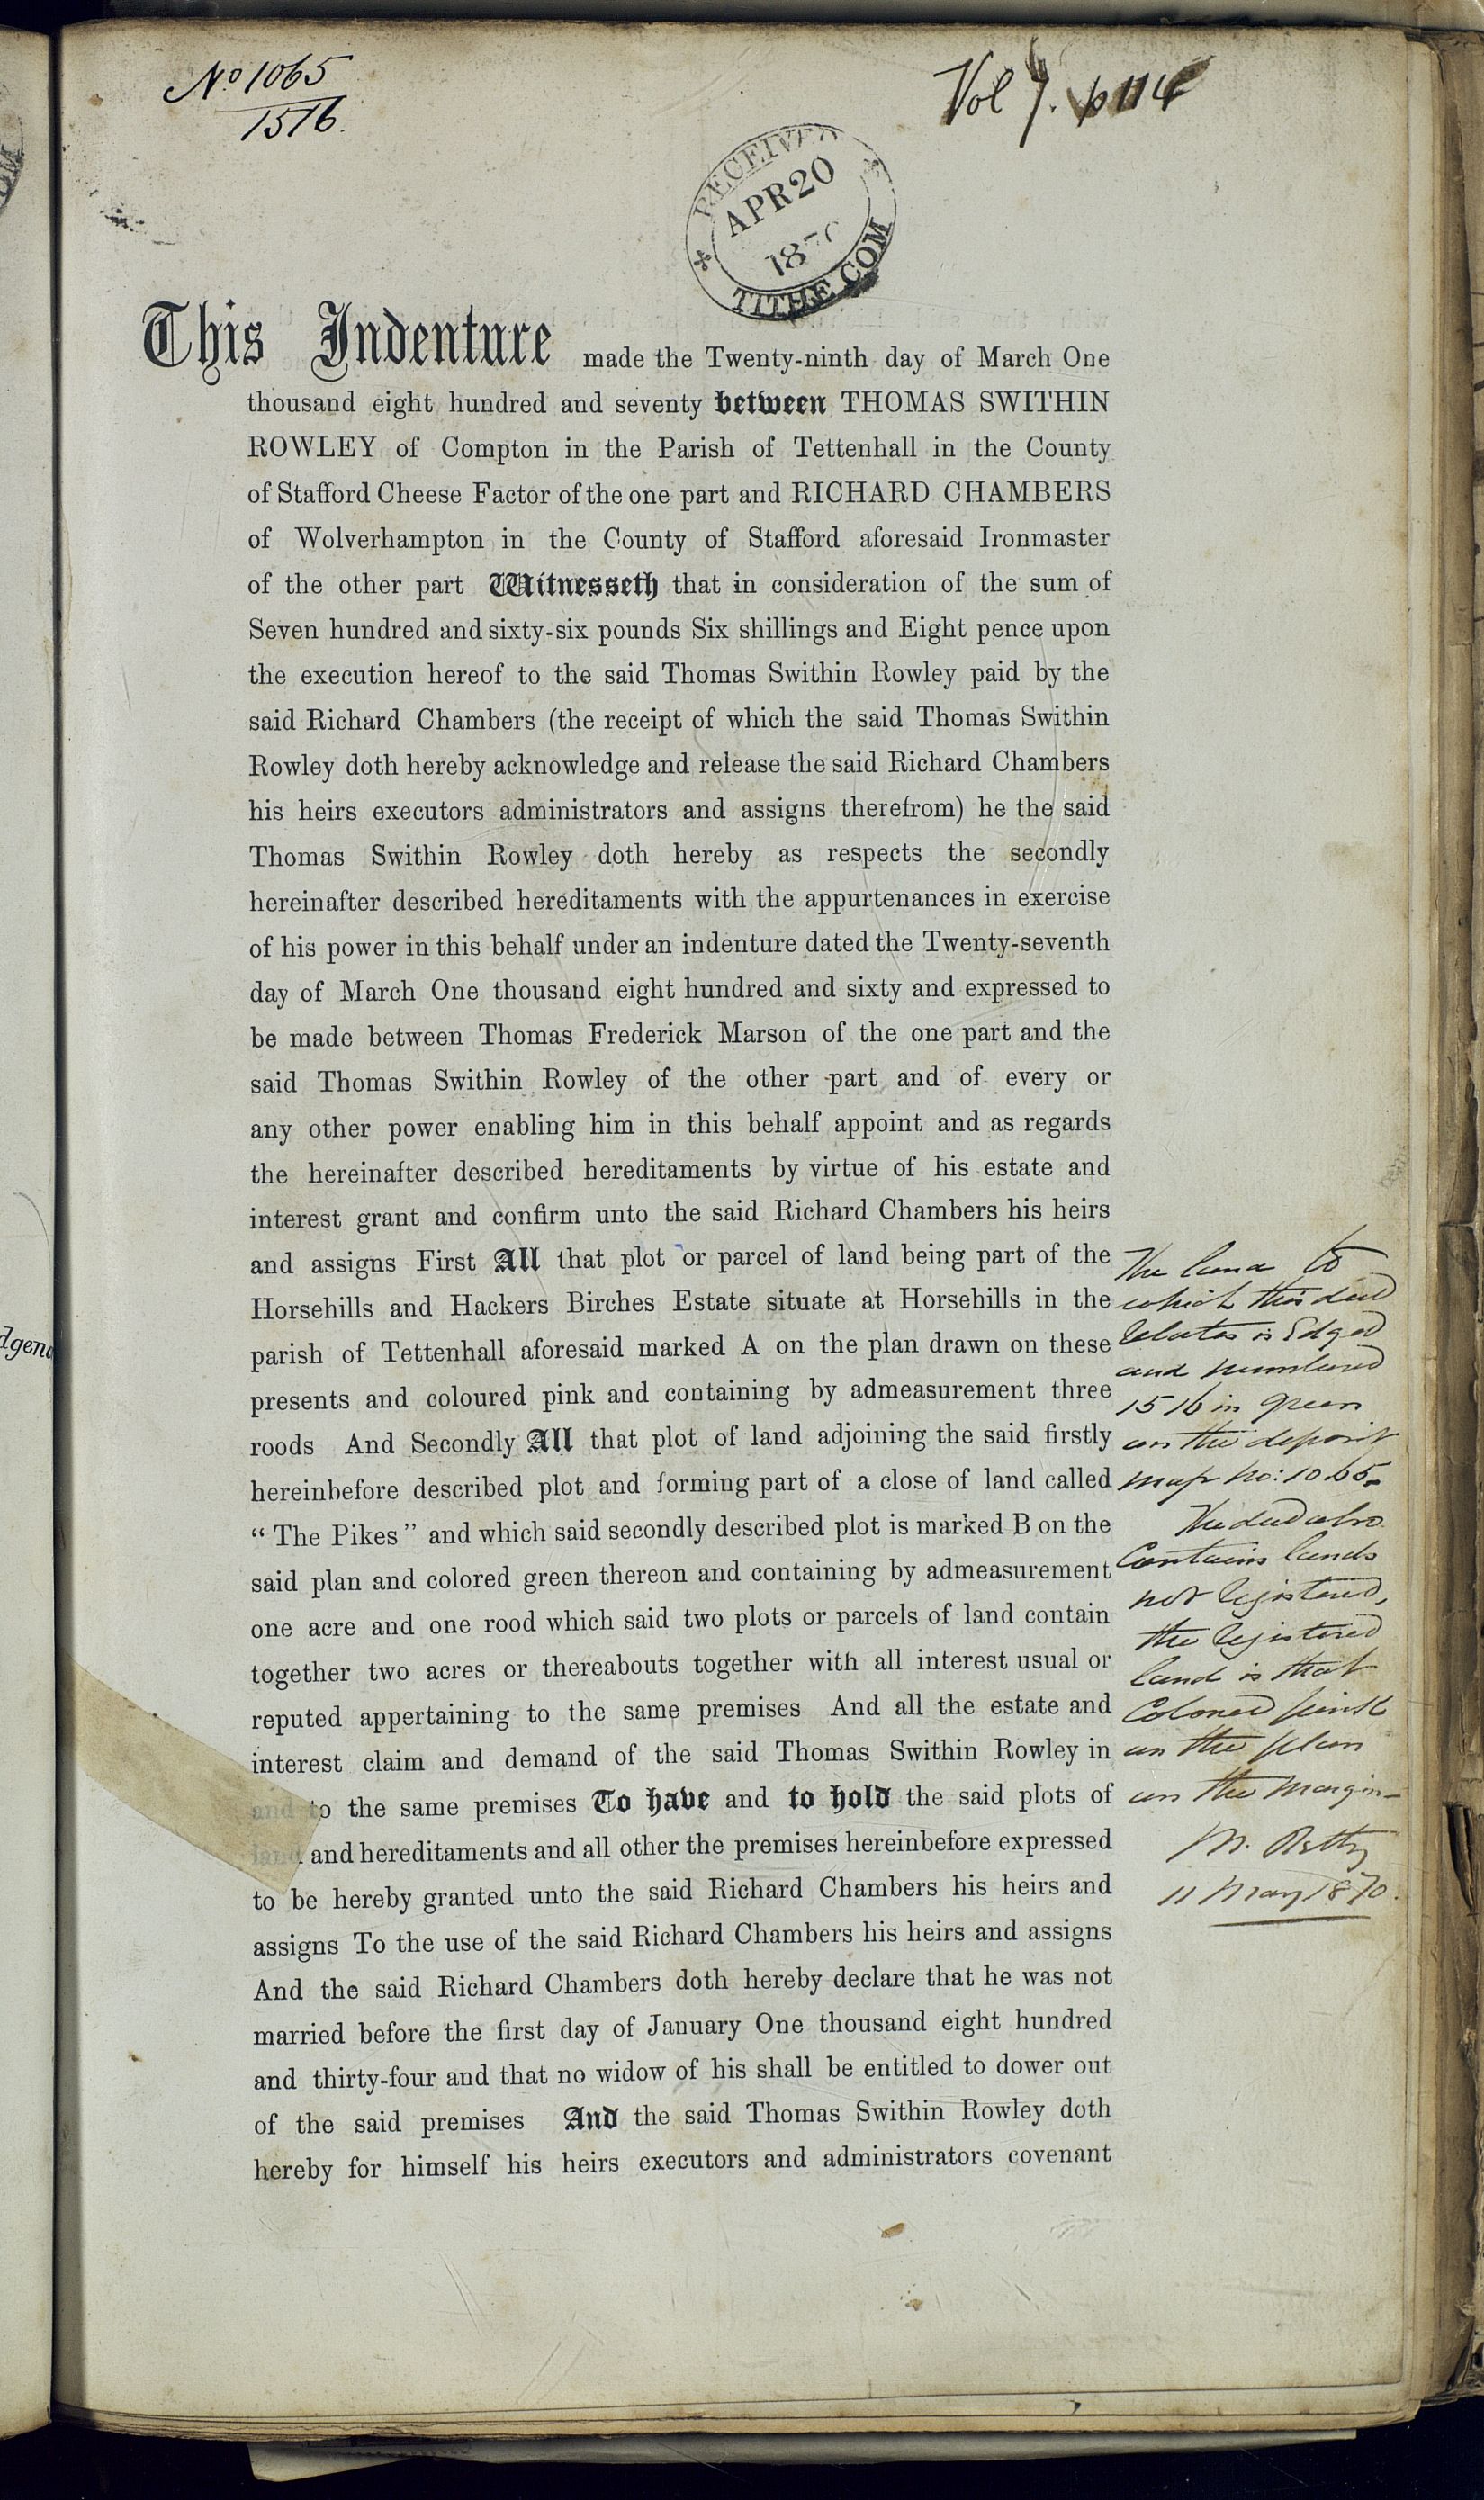 No 1065
1516.
Vol 7. p 114
RECEIVED
APR 20
187
TITHE COM
This Indenture made the Twenty-ninth day of March One
thousand eight hundred and seventy between THOMAS SWITHIN
ROWLEY of Compton in the Parish of Tettenhall in the County
of Stafford Cheese Factor of the one part and RICHARD CHAMBERS
of Wolverhampton in the County of Stafford aforesaid Ironmaster
of the other part Witnesseth that in consideration of the sum of
Seven hundred and sixty-six pounds Six shillings and Eight pence upon
the execution hereof to the said Thomas Swithin Rowley paid by the
said Richard Chambers (the receipt of which the said Thomas Swithin
Rowley doth hereby acknowledge and release the said Richard Chambers
his heirs executors administrators and assigns therefrom) he the said
Thomas Swithin Rowley doth hereby as respects the secondly
hereinafter described hereditaments with the appurtenances in exercise
of his power in this behalf under an indenture dated the Twenty-seventh
day of March One thousand eight hundred and sixty and expressed to
be made between Thomas Frederick Marson of the one part and the
said Thomas Swithin Rowley of the other part and of every or
any other power enabling him in this behalf appoint and as regards
the hereinafter described hereditaments by virtue of his estate and
interest grant and confirm unto the said Richard Chambers his heirs
and assigns First All that plot or parcel of land being part of the
Horsehills and Hackers Birches Estate situate at Horsehills in the
parish of Tettenhall aforesaid marked A on the plan drawn on these
presents and coloured pink and containing by admeasurement three
roods And Secondly All that plot of land adjoining the said firstly
hereinbefore described plot and forming part of a close of land called
“ The Pikes ” and which said secondly described plot is marked B on the
said plan and colored green thereon and containing by admeasurement
one acre and one rood which said two plots or parcels of land contain
together two acres or thereabouts together with all interest usual or
reputed appertaining to the same premises And all the estate and
interest claim and demand of the said Thomas Swithin Rowley in
and to the same premises To have and to hold the said plots of
land and hereditaments and all other the premises hereinbefore expressed
to be hereby granted unto the said Richard Chambers his heirs and
assigns To the use of the said Richard Chambers his heirs and assigns
And the said Richard Chambers doth hereby declare that he was not
married before the first day of January One thousand eight hundred
and thirty-four and that no widow of his shall be entitled to dower out
of the said premises And the said Thomas Swithin Rowley doth
hereby for himself his heirs executors and administrators covenant
The land to
which this deed
relates is Edged
and numbered
1516 in green
on the deposit
map no: 1065.
The deed also
Contains lands
not registered,
the registered
land is that
Colored pink
on the plan
on the margin—
11 May 1870.